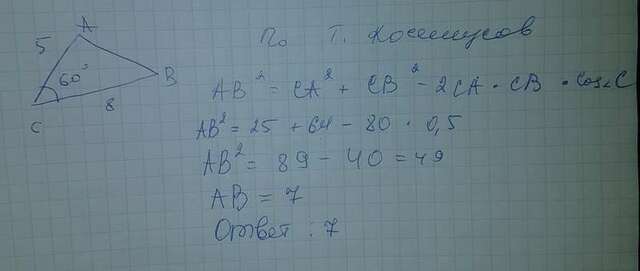 A
5
60°
B
8
C
По Т. Косинусов
AB² = CA² + CB² - 2CA · CB · Cos∠C
AB² = 25 + 64 - 80 · 0,5
AB² = 89 - 40 = 49
AB = 7
Ответ : 7